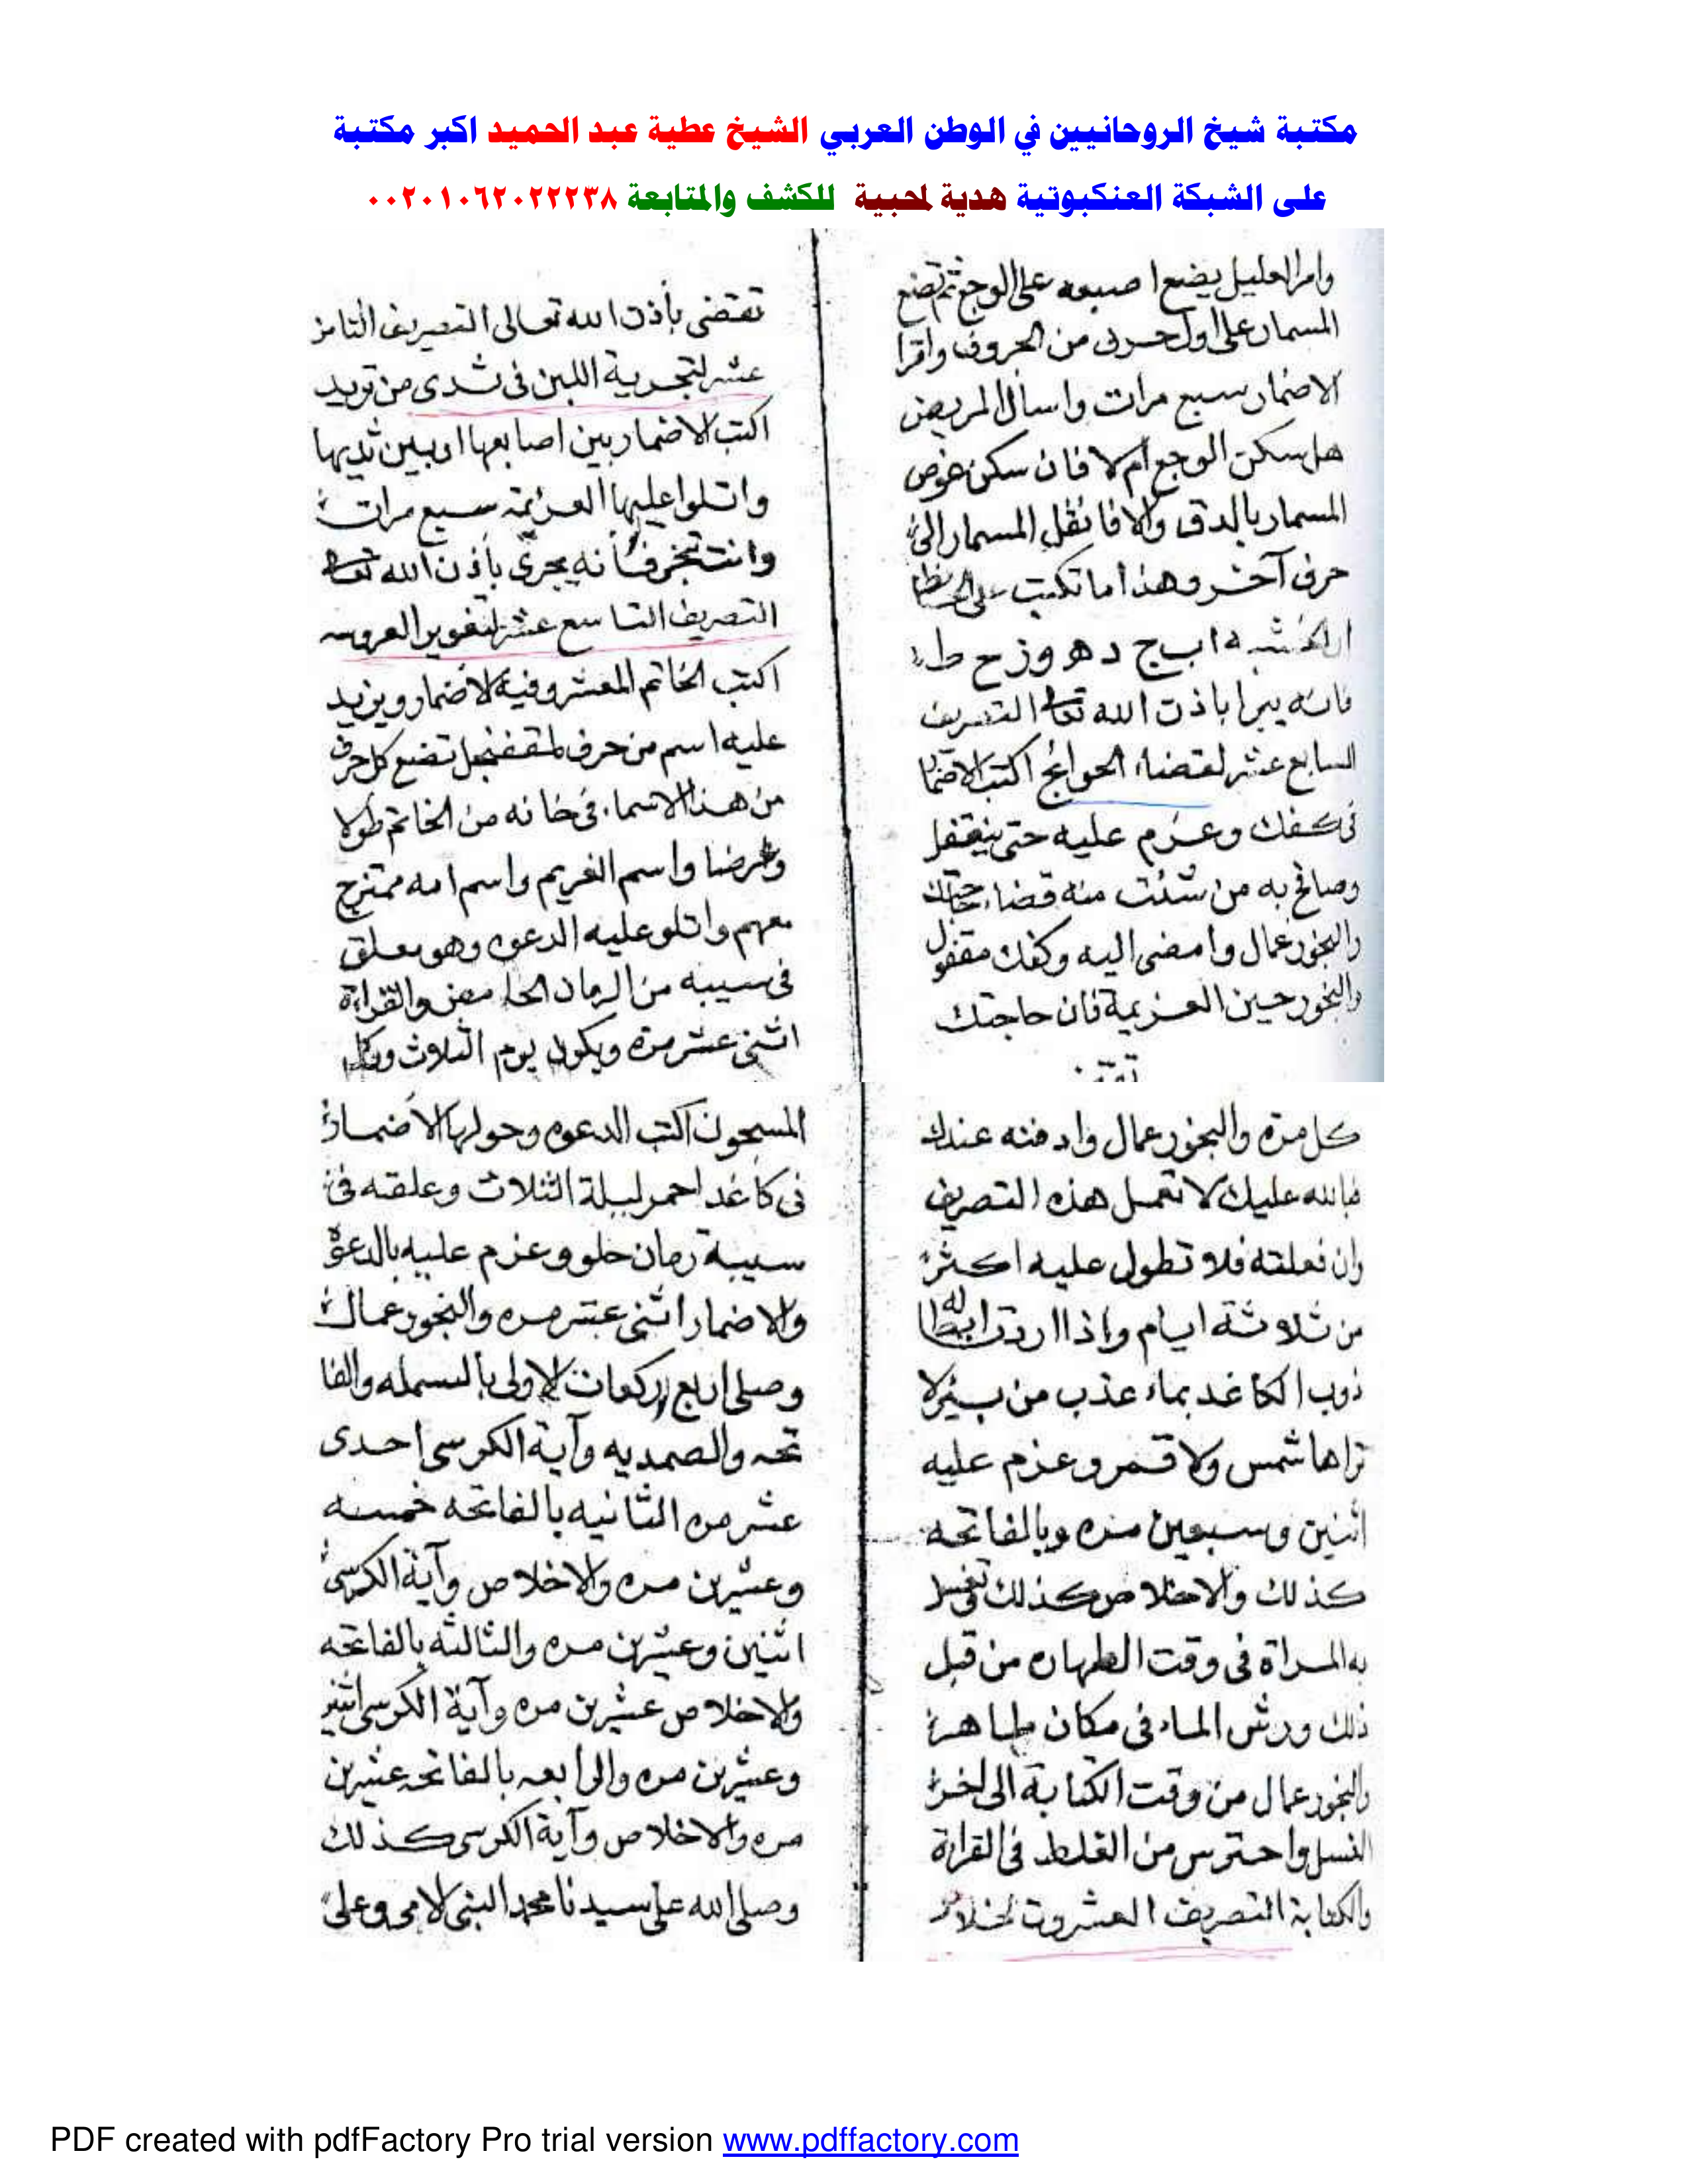 مكتبة شيخ الروحانيين في الوطن العربي الشيخ عطية عبد الحميد اكبر مكتبة
على الشبكة العنكبوتية هدية لمحبية للكشف والمتابعة ٠٠٢٠١٠٦٢٠٢٢٢٣٨
وامر العليل يضع اصبعه على الوجع ثم تضع
المسمار على اول حرف من الحروف واقرا
الاضمار سبع مرات واسال المريض
هل سكن الوجع ام لا فان سكن غوص
المسمار بالدق والا فانقل المسمار الى
حرف آخر وهذا ما تكتب على
ا ب ج د ه و ز ح ط
فانه يبرا باذن الله تعالى التصريف
السابع عشر لقضاء الحوائج اكتب الاضمار
فى كفك وعزم عليه حتى ينقفل
وصافح به من شئت منه قضاء حاجتك
والبخور عمال وامضى اليه وكفك مقفول
والبخور حين العزيمة فان حاجتك
تقضى بأذن الله تعالى التصريف الثامن
عشر لتجرية اللبن فى ثدى من تريد
اكتب الاضمار بين اصابعها او بين ثديها
واتلوا عليها العزيمة سبع مرات
وانت تبخر فأنه يجرى بأذن الله تعالى
التصريف التاسع عشر لتغوير العروسه
اكتب الخاتم المعشر وفيه الاضمار ويزيد
عليه اسم من حرف تضع كل حرف
من هذا الاسماء فى خانه من الخاتم طولا
وعرضا واسم الغريم واسم امه ممتزج
معهم واتلو عليه الدعوه وهو معلق
فى سيبه من الرمان الحامض والقراءة
اثنى عشر مره ويكون يوم الثلاث وكل
كل مره والبخور عمال وادفنه عندك
فبالله عليك لا تعمل هذه التصريف
وان فعلته فلا تطول عليه اكثر
من ثلاثة ايام واذا اردت ابطاله
ذوب الكاغد بماء عذب من بير لا
تراها شمس ولا قمر وعزم عليه
اثنين وسبعين مره وبالفاتحه
كذلك والاخلاص كذلك تغسل
به المراة فى وقت الطهاره من قبل
ذلك ورش الماء فى مكان طاهر
والبخور عمال من وقت الكتابة الى اخر
الغسل واحترس من الغلط فى القراءة
والكتابة التصريف العشرون لخلاص
المسجون اكتب الدعوه وحولها الاضمار
فى كاغد احمر ليلة الثلاث وعلقه فى
سيبة رمان حلو وعزم عليه بالدعوة
والاضمار اثنى عشر مره والبخور عمال
وصلى اربع ركعات الاولى بالبسمله والفا
تحه والصمديه وآية الكرسى احدى
عشر مره الثانيه بالفاتحه خمسه
وعشرين مره والاخلاص وآية الكرسى
اثنين وعشرين مره والثالثه بالفاتحه
والاخلاص عشرين مره وآية الكرسى اثنين
وعشرين مره والرابعه بالفاتحه عشرين
مره والاخلاص وآية الكرسى كذلك
وصلى الله على سيدنا محمد النبى الامى وعلى
PDF created with pdfFactory Pro trial version www.pdffactory.com